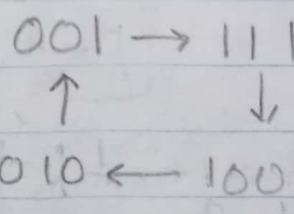 001 → 111
↑ ↓
010 ← 100